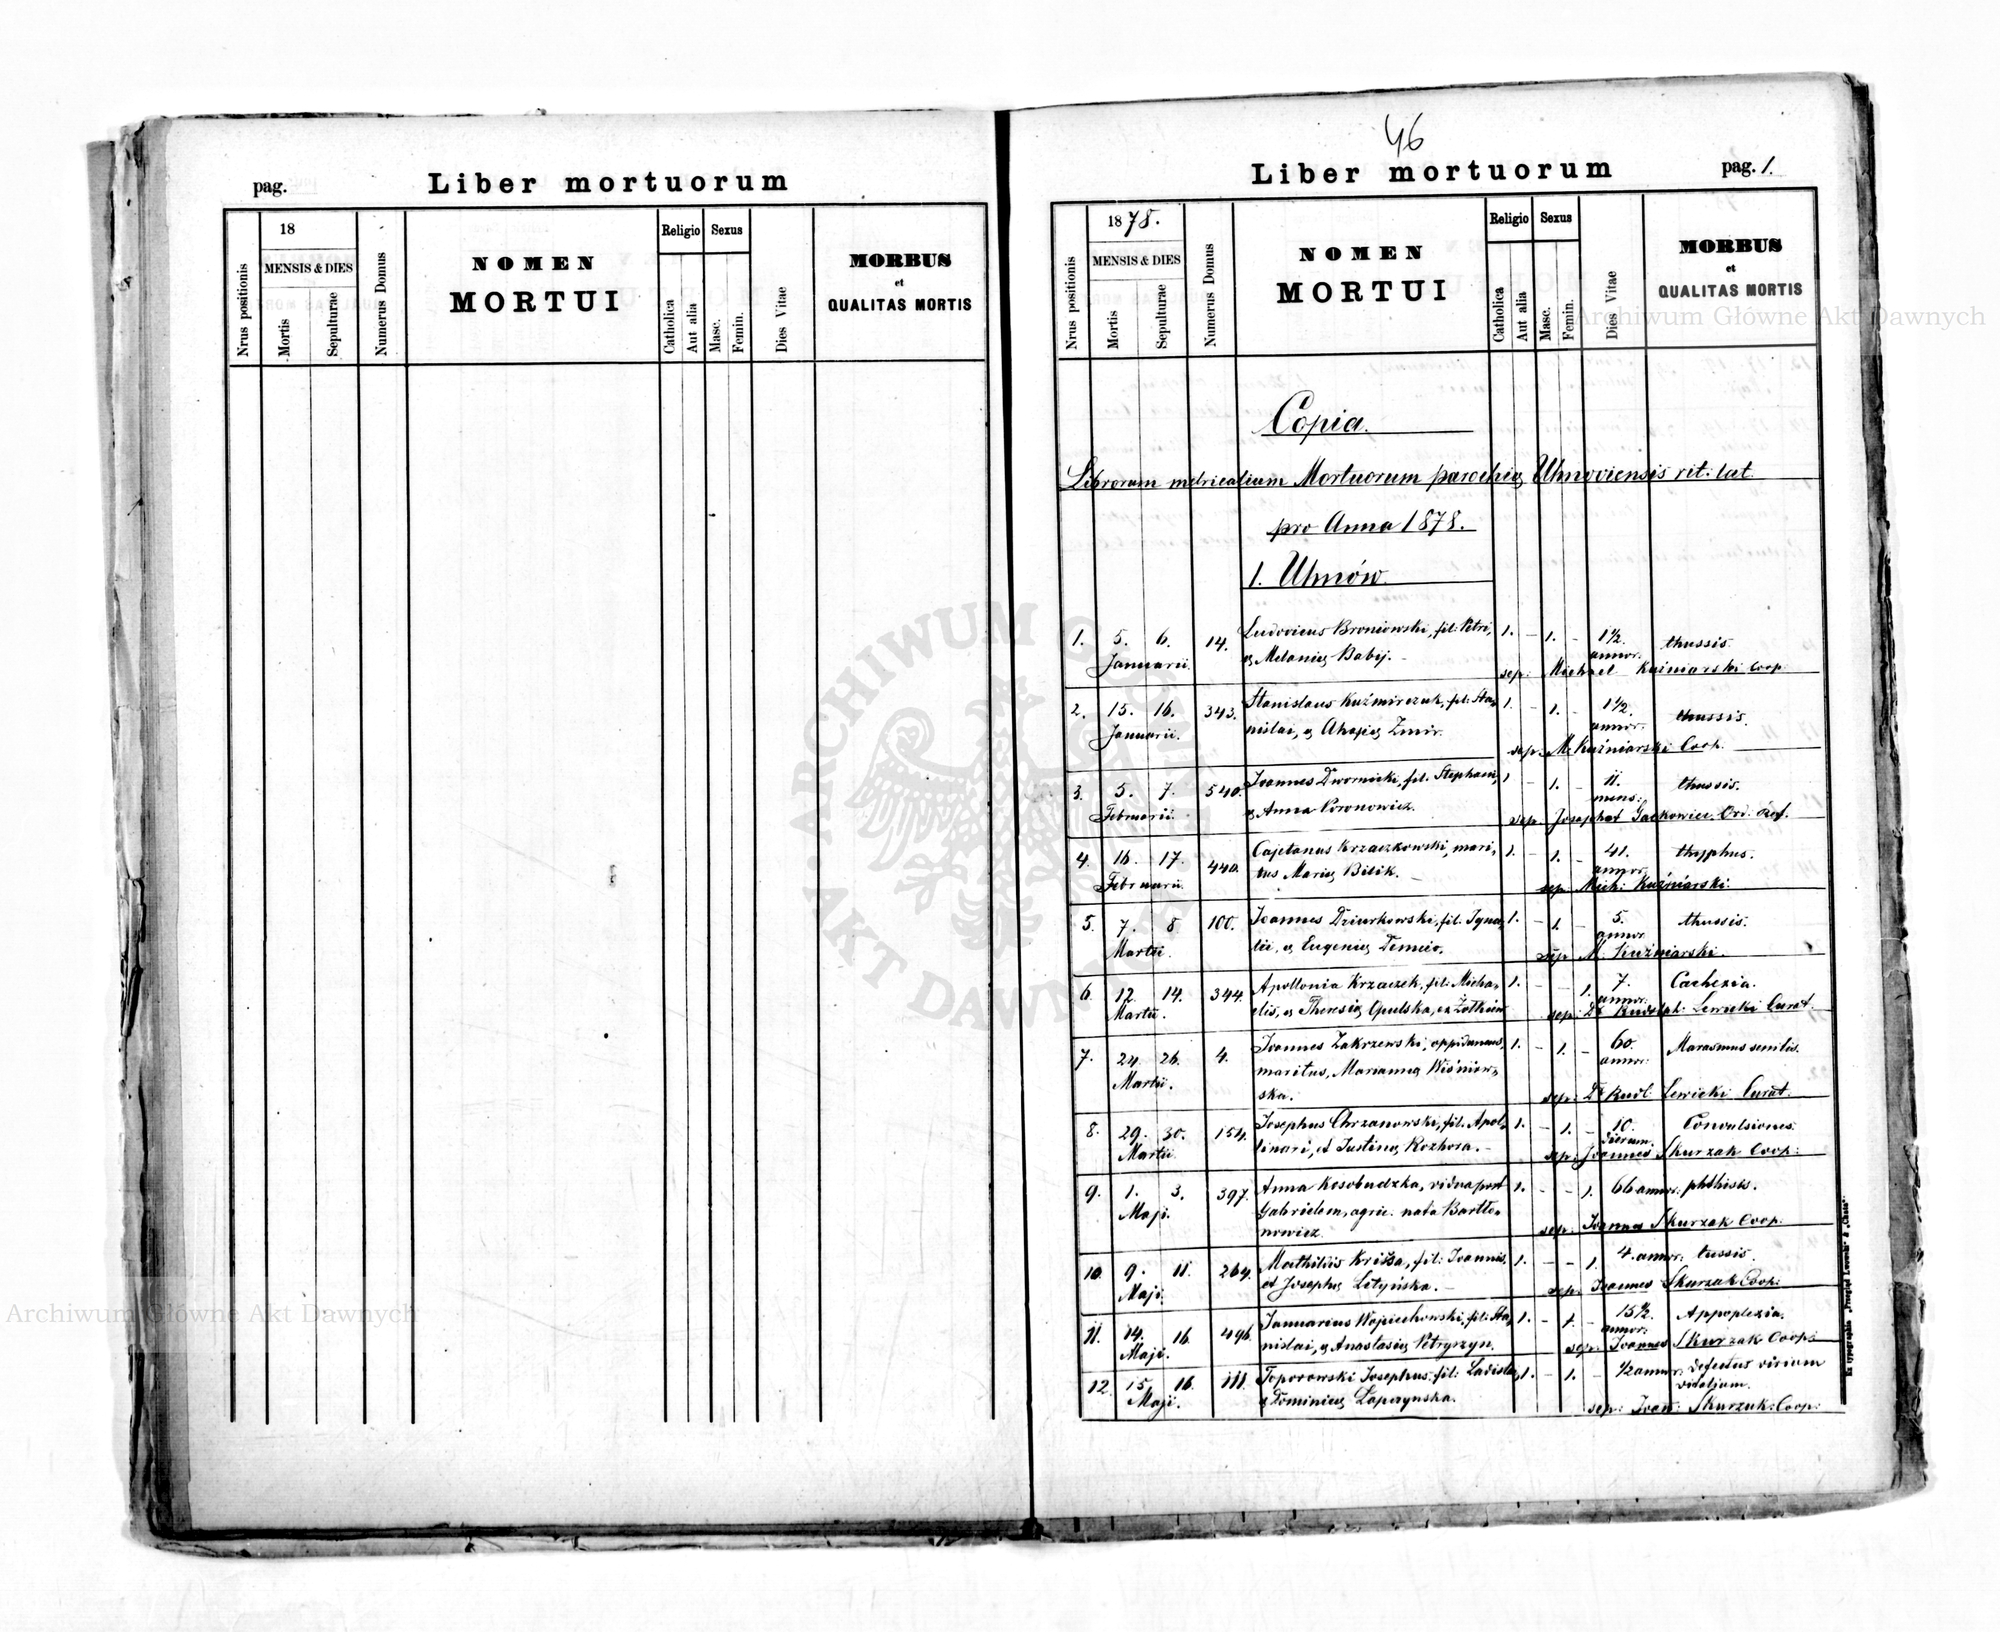 pag.
Liber mortuorum
Nrus positionis
18
MENSIS & DIES
Mortis
Sepulturae
Numerus Domus
NOMEN
MORTUI
Religio
Catholica
Aut alia
Sexus
Masc.
Femin.
Dies Vitae
MORBUS
et
QUALITAS MORTIS
46
Liber mortuorum
pag. 1.
Nrus positionis
1878.
MENSIS & DIES
Mortis
Sepulturae
Numerus Domus
NOMEN
MORTUI
Religio
Catholica
Aut alia
Sexus
Masc.
Femin.
Dies Vitae
MORBUS
et
QUALITAS MORTIS
Copia.
Librorum metricalium Mortuorum parochię Uhnoviensis rit: lat.
pro Anno 1878.
1. Uhnów.
1. 5. 6. 14. Ludovicus Broniowski, fil: Petri, 1. - 1. - 1½ thussis.
Januarii. & Melanię Babij. - annor.
sep: Michael Kuźniarski Coop.
2. 15. 16. 343. Stanislaus Kuźmirczuk, fil: Sta, 1. - 1. - 1½ thussis.
Januarii. nislai, & Ahafię Zmir. annor.
sep: M. Kuźniarski Coop.
3. 5. 7. 540. Joannes Dwornicki, fil. Stephani, 1. - 1. - 11. thussis.
Februarii. & Anna Woronowicz. mens:
sep. Josaphat Gackowicz. Ord. Ref.
4. 16. 17. 440. Cajetanus Krzaczkowski, mari, 1. - 1. - 41. thyphus.
Februarii. tus Marię Bilik. - annor.
sep. Mich: Kuźniarski.
5. 7. 8. 100. Joannes Dziurkowski, fil: Igna, 1. - 1. - 5. thussis.
Martii. tii, & Eugenię Demcio. annor.
sep. M. Kuźniarski.
6. 12. 14. 344. Apollonia Krzaczek, fil: Micha, 1. - - 1. 7. Cachexia.
Martii. elis, & Theresię Opulska, ex Żółkiew annor.
sep: Dr. Rudolph: Lewicki Curat.
7. 24. 26. 4. Joannes Zakrzewski, oppidaneus, 1. - 1. - 60. Marasmus senilis.
Martii. maritus, Mariannę Wiśniow, annor.
ska. sep: Dr. Rudl. Lewicki Curat.
8. 29. 30. 154. Josephus Chrzanowski, fil. Apol, 1. - 1. - 10. Convulsiones.
Martii. linari, et Justinę Rozhora. - dierum.
sep: Joannes Skurzak Coop:
9. 1. 3. 397. Anna Kosobudzka, vidua post 1. - - 1. 66 annor. phthisis.
Maji. Gabrielem, agric. nata Bartło,
nowicz. sep. Joannes Skurzak Coop.
10. 9. 11. 264. Mathildis Kriśka, fil: Joannis, 1. - - 1. 4. annor: tussis.
Maji. et Josephę Letyńska. - sep: Joannes Skurzak Coop:
11. 14. 16. 496. Januarius Wojciechowski, fil: Sta, 1. - 1. - 15½ Appoplexia.
Maji. nislai, & Anastasię Petryszyn. annor:
sep: Joannes Skurzak Coop:
12. 15. 16. 111. Toporowski Josephus. fil: Ladislai, 1. - 1. - ½ annor: defectus virium
Maji. & Dominicę Łopczynska. vitalium.
sep: Joan: Skurzak: Coop:
Ex typographia „Przegląd Lwowski" & „Chata".
ARCHIWUM GŁÓWNE AKT DAWNYCH
Archiwum Główne Akt Dawnych
Archiwum Główne Akt Dawnych